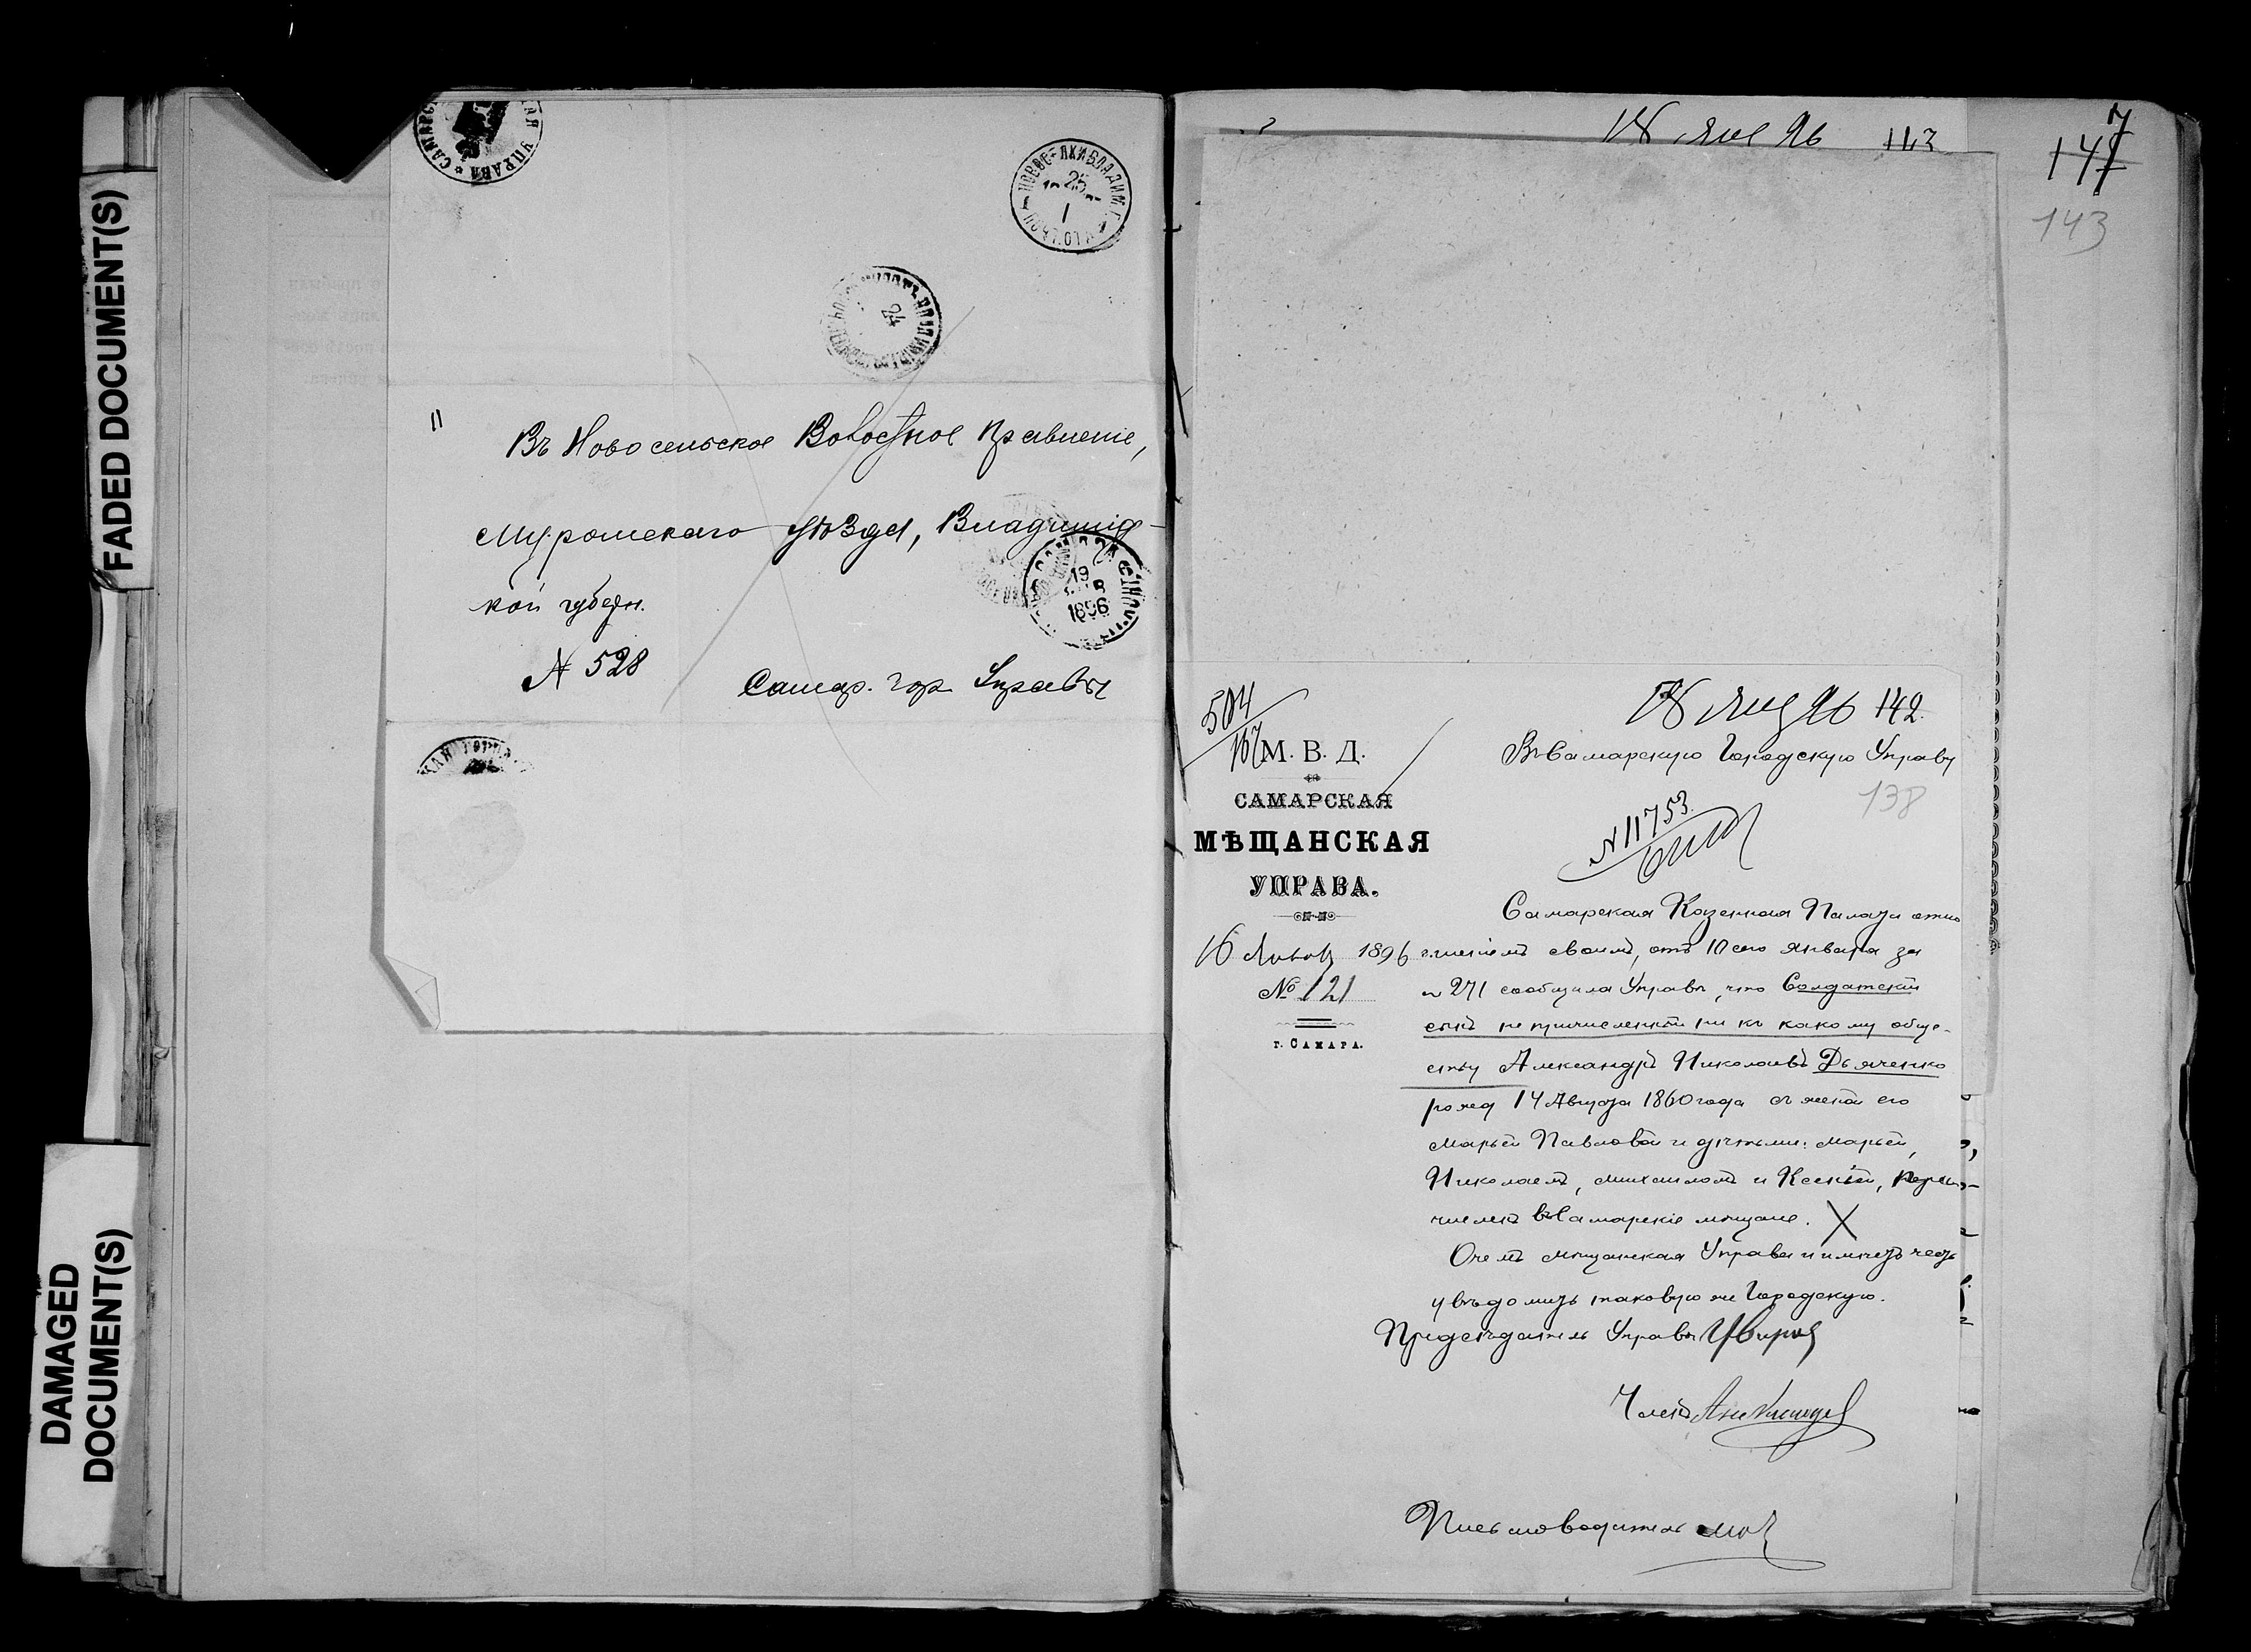 FADED DOCUMENT(S)
DAMAGED
DOCUMENT(S)
25
1
24
Въ Новосельское Волостное Правленіе,
Муромскаго уѣзда, Владимір-
кой губерн.
19
1896
№ 528
Самар. Гор. Управы
18 Янв 96 143
147
143
504
167
М. В. Д.
САМАРСКАЯ
МѢЩАНСКАЯ
УПРАВА.
16 Января 1896
№ 121
г. САМАРА.
18 Янв 96 142.
Въ Самарскую Городскую Управу
138
№ 11753
Самарская Казенная Палата отно
шеніемъ своимъ, отъ 10 сего Января за
№ 271 сообщила Управѣ, что Солдатскій
сынъ не причисленный ни къ какому обще-
ству Александръ Николаевъ Дьяченко
рожд 14 Августа 1860 года съ женой его
Марьей Павловой и дѣтьми: Марьей,
Николаемъ, Михаиломъ и Ксеніей, пере
численъ въ Самарскіе мѣщане. X
О чемъ Мѣщанская Управа и имѣетъ честь
увѣдомить таковую же Городскую.
Предсѣдатель Управы
Членъ
Письмоводитель